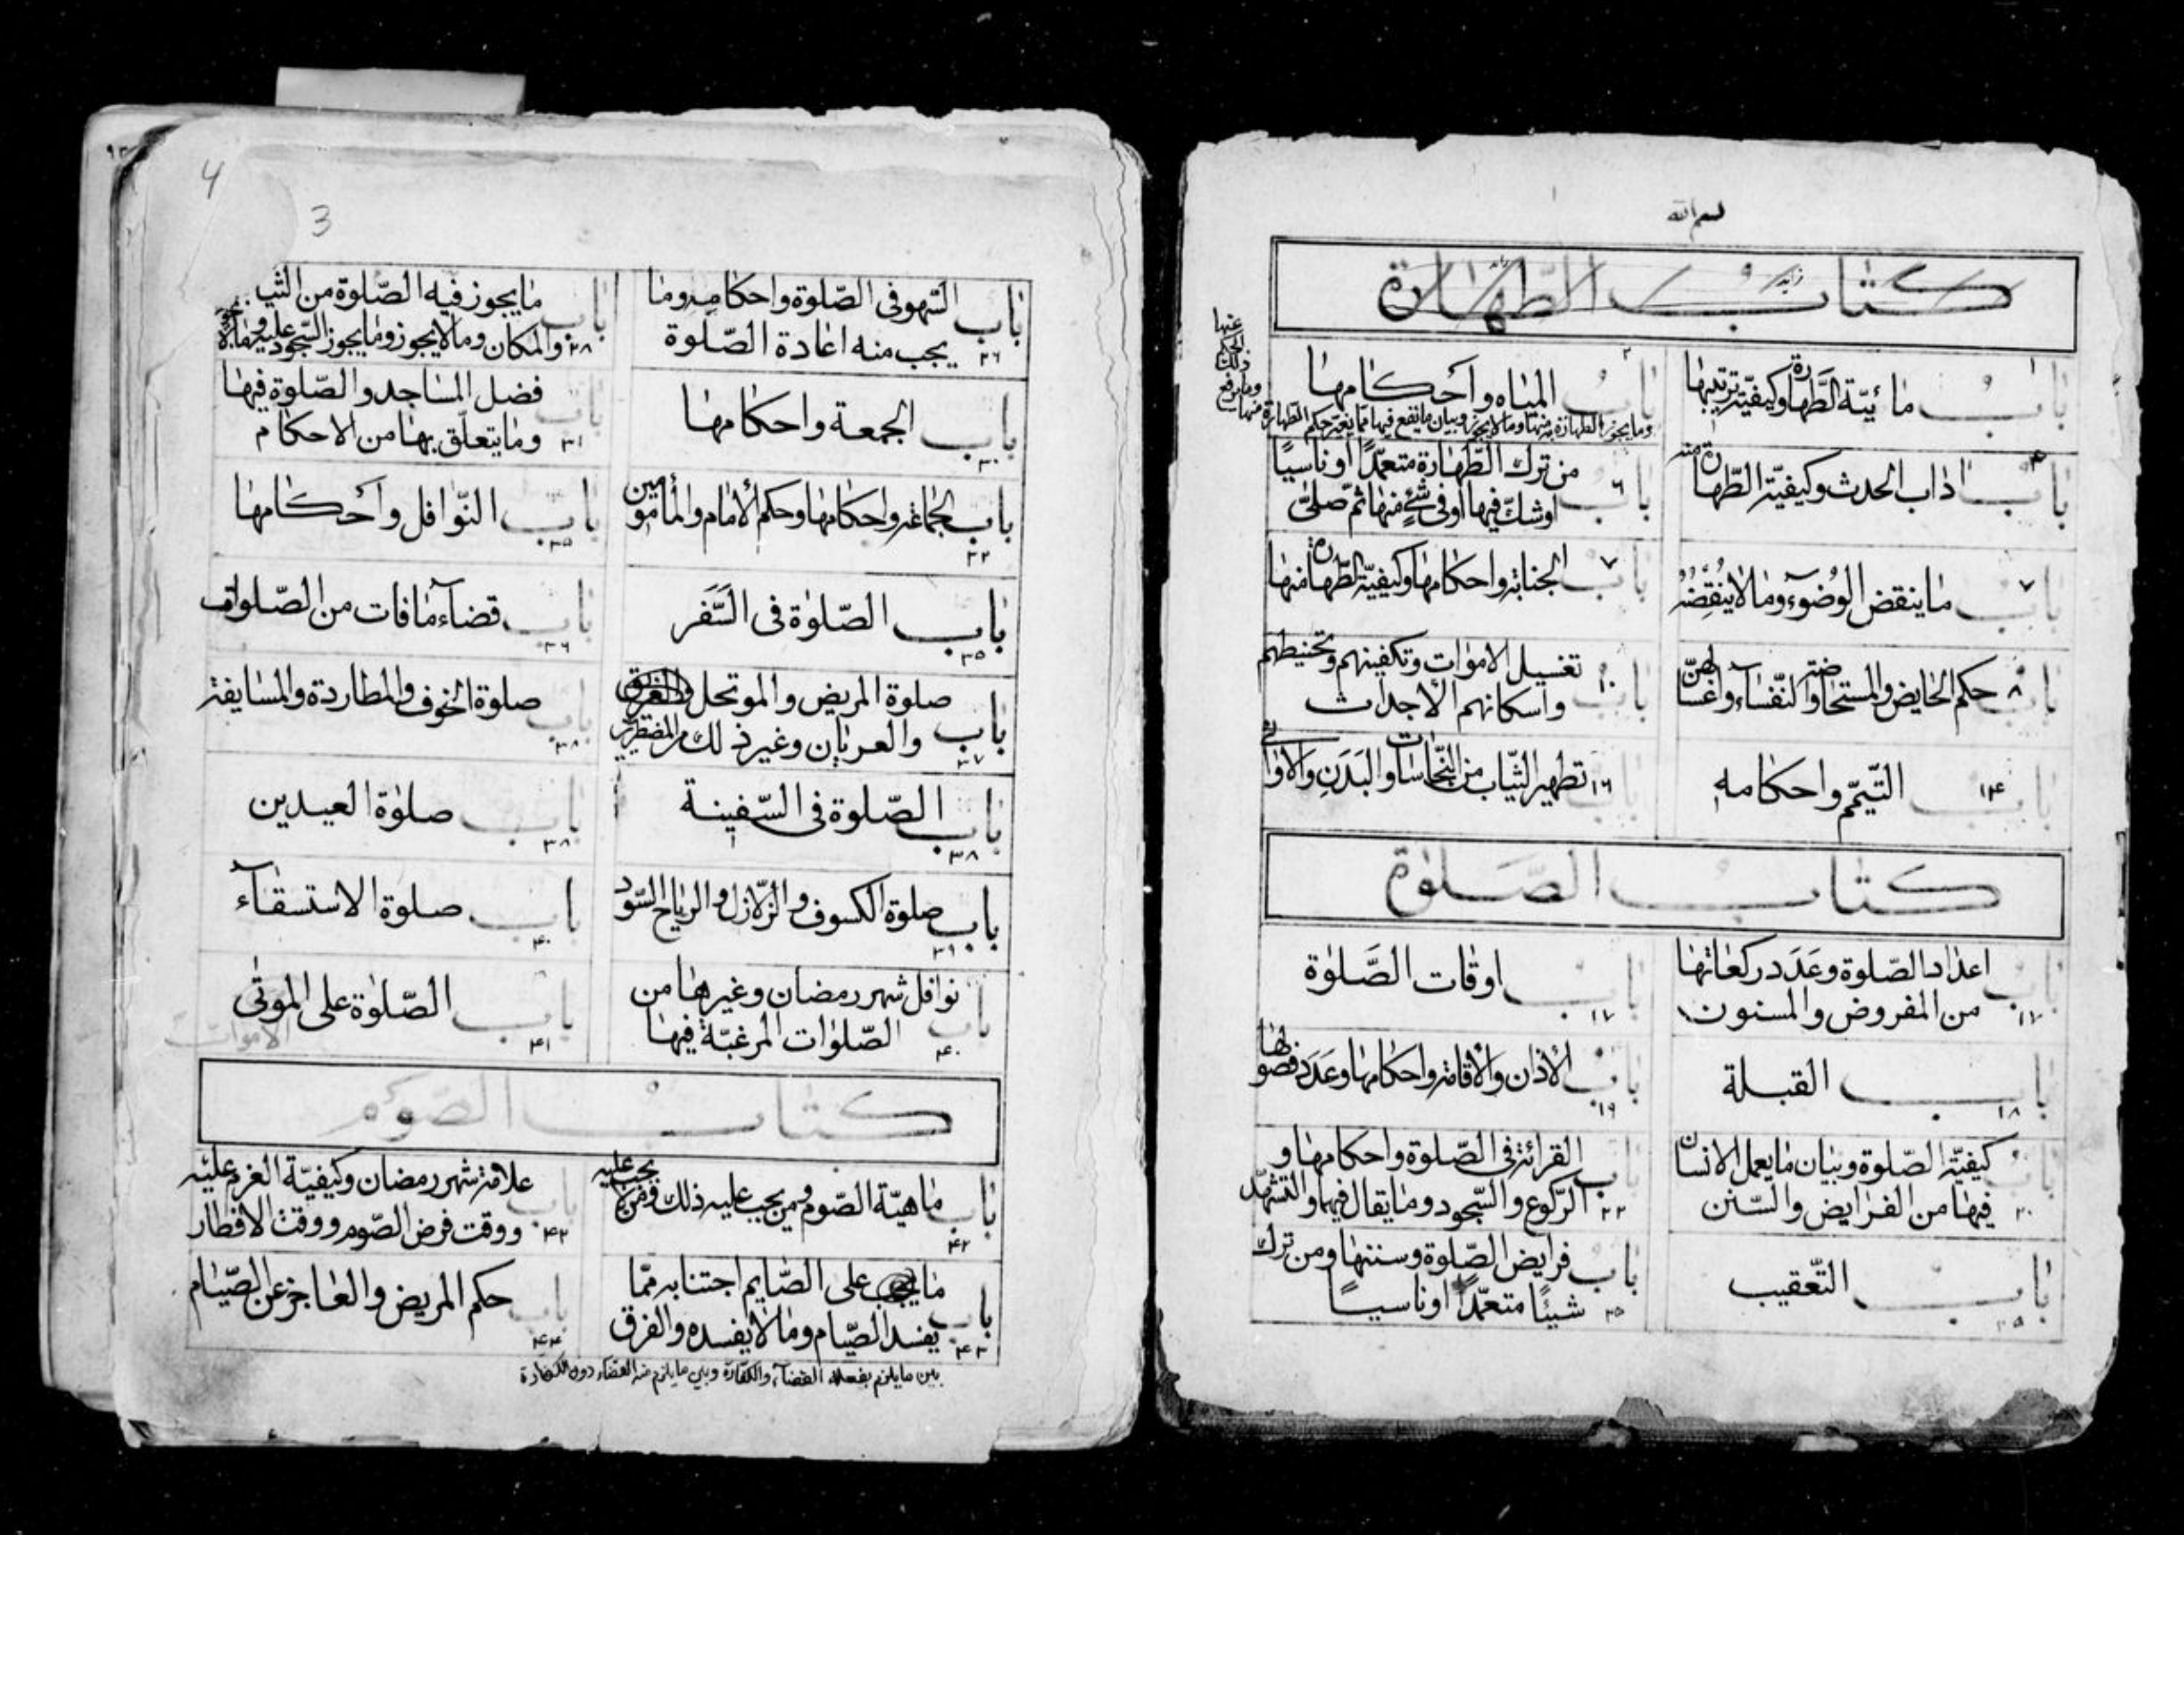 بسم الله
كتاب الطهارة
باب ما ئيّة الطّهارة وكيفيّة ترتيبها
١
باب المياه وأحكامها
٢
وما يجوز الطهارة منها وما لا يجوز وبيان ما يقع فيها مما يغير حكم الطهارة منها
عنها
الحكم
ذلك
وما يرفع
باب اداب الحدث وكيفيّة الطّهارة منه
باب من ترك الطّهارة متعمّدًا او ناسيًا
٦ اوشكّ فيها او فى شئ منها ثمّ صلىّ
باب ما ينقض الوُضوء وما لا ينقضه
٧
باب الجنابة واحكامها وكيفيّة الطّهارة منها
٧
باب حكم الحايض والمستحاضة والنّفساء واغسالهنّ
٨
باب تغسيل الاموات وتكفينهم وتحنيطهم
١٠ واسكانهم الأجداث
باب التّيمّم واحكامه
١٤
باب تطهير الثّياب من النّجاسات والبَدَنِ والاوانى
١٦
كتاب الصَّلوٰة
باب اعداد الصّلوة وعَدَد ركعاتها
١٧ من المفروض والمسنون
باب اوقات الصَّلوٰة
١٧
باب القبلة
١٨
باب الأذان والأقامة واحكامها وعَدَد فصولها
١٩
باب كيفيّة الصّلوة وبيان ما يعمل الانسان
٢٠ فيها من الفرايض والسّنن
باب القرائة فى الصّلوة واحكامها و
٢٢ الرّكوع والسّجود وما يقال فيها والتّشهّد
باب التّعقيب
٢٥
باب فرايض الصّلوة وسننها ومن ترك
٢٥ شيئًا متعمّدًا او ناسيًا
4
3
باب السّهو فى الصّلوة واحكامه وما
٢٦ يجب منه اعادة الصّلوة
باب ما يجوز فيه الصّلوة من الثياب
٢٨ والمكان وما لا يجوز وما يجوز السّجود عليه وما لا يجوز
باب الجمعة واحكامها
٣٠
باب فضل المساجد والصّلوة فيها
٣١ وما يتعلّق بها من الاحكام
باب الجماعة واحكامها وحكم الأمام والمأمومين
٣٢
باب النّوافل وأحكامها
٣٥
باب الصّلوٰة فى السَّفَر
٣٥
باب قضاء ما فات من الصّلوات
٣٦
باب صلوة المريض والموتحل والغريق
٣٧ والعريان وغير ذلك من المضطرّين
باب صلوة الخوف والمطاردة والمسايفة
٣٨
باب الصّلوة فى السّفينة
٣٨
باب صلوٰة العيدين
٣٨
باب صلوة الكسوف والزّلازل والرياح السّود
٣٩
باب صلوة الاستسقاء
٤٠
باب نوافل شهر رمضان وغيرها من
٤٠ الصّلوات المرغبّة فيها
باب الصّلوٰة على الموتٰى
٤١
الاموات
كتاب الصوم
باب ماهيّة الصّوم ومن يجب عليه ذلك ومن لا يجب عليه
٤٢
باب علامة شهر رمضان وكيفيّة العزم عليه
٤٢ ووقت فرض الصّوم ووقت الافطار
باب ما يجب على الصّايم اجتنابه ممّا
٤٣ يفسد الصّيام وما لا يفسده والفرق
بين ما يلزم بفعله القضاء والكفارة وبين ما يلزم منه القضاء دون الكفارة
باب حكم المريض والعاجز عن الصّيام
٤٤